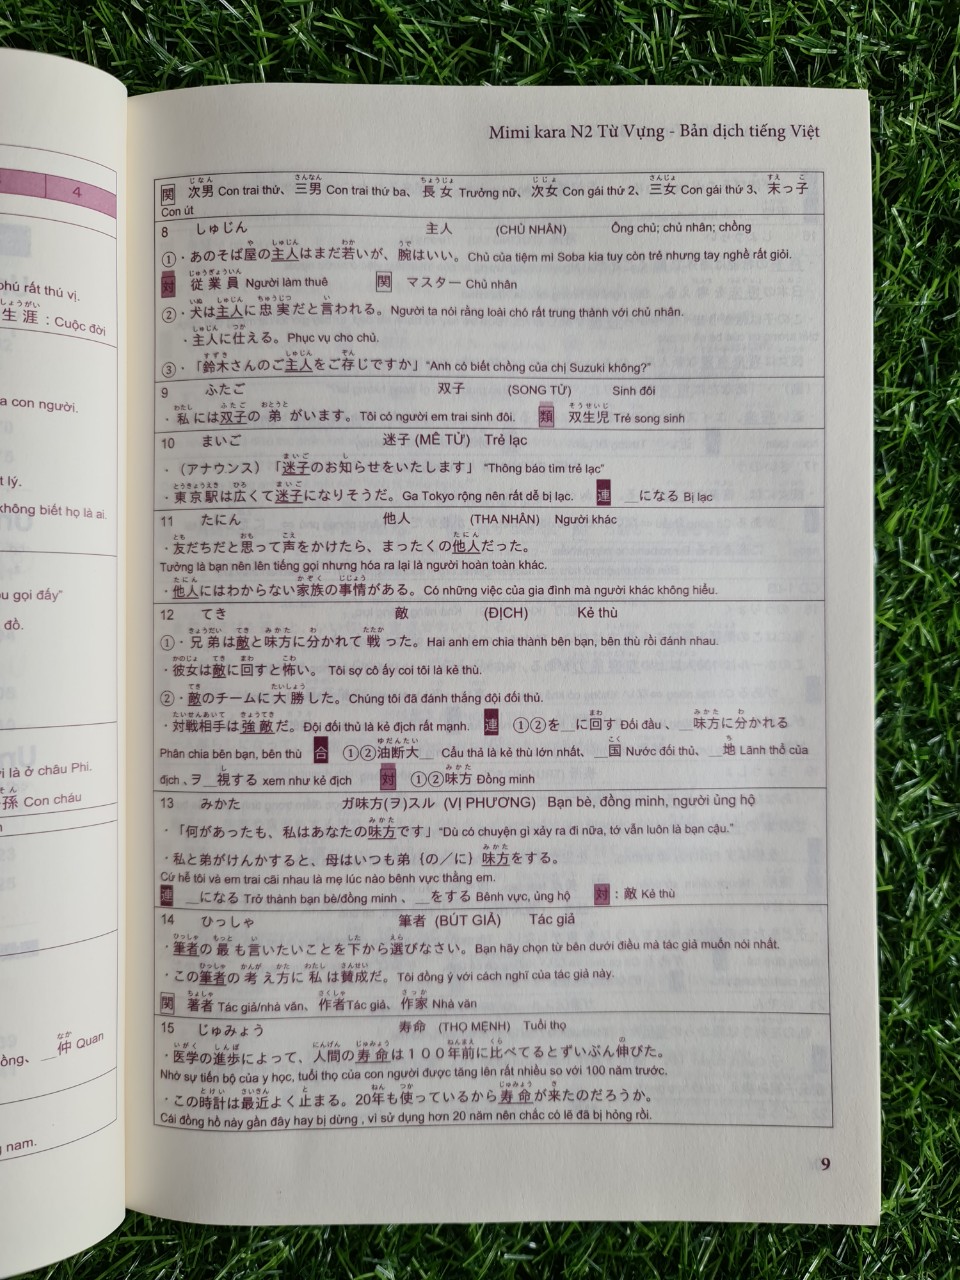 4
phú rất thú vị.
生涯 : Cuộc đời
a con người.
t lý.
không biết họ là ai.
u gọi đấy"
đồ.
vi là ở châu Phi.
孫 Con cháu
ồng、 __仲 Quan
g nam.
Mimi kara N2 Từ Vựng - Bản dịch tiếng Việt
関 次男 Con trai thứ、 三男 Con trai thứ ba、 長女 Trưởng nữ、 次女 Con gái thứ 2、 三女 Con gái thứ 3、 末っ子
Con út
8 しゅじん 主人 (CHỦ NHÂN) Ông chủ; chủ nhân; chồng
①・あのそば屋の主人はまだ若いが、腕はいい。 Chủ của tiệm mì Soba kia tuy còn trẻ nhưng tay nghề rất giỏi.
対 従業員 Người làm thuê 関 マスター Chủ nhân
②・犬は主人に忠実だと言われる。 Người ta nói rằng loài chó rất trung thành với chủ nhân.
・主人に仕える。 Phục vụ cho chủ.
③・「鈴木さんのご主人をご存じですか」 "Anh có biết chồng của chị Suzuki không?"
9 ふたご 双子 (SONG TỬ) Sinh đôi
・私には双子の弟がいます。 Tôi có người em trai sinh đôi. 類 双生児 Trẻ song sinh
10 まいご 迷子 (MÊ TỬ) Trẻ lạc
・（アナウンス）「迷子のお知らせをいたします」 "Thông báo tìm trẻ lạc"
・東京駅は広くて迷子になりそうだ。 Ga Tokyo rộng nên rất dễ bị lạc. 連 __になる Bị lạc
11 たにん 他人 (THA NHÂN) Người khác
・友だちだと思って声をかけたら、まったくの他人だった。
Tưởng là bạn nên lên tiếng gọi nhưng hóa ra lại là người hoàn toàn khác.
・他人にはわからない家族の事情がある。 Có những việc của gia đình mà người khác không hiểu.
12 てき 敵 (ĐỊCH) Kẻ thù
①・兄弟は敵と味方に分かれて戦った。 Hai anh em chia thành bên bạn, bên thù rồi đánh nhau.
・彼女は敵に回すと怖い。 Tôi sợ cô ấy coi tôi là kẻ thù.
②・敵のチームに大勝した。 Chúng tôi đã đánh thắng đội đối thủ.
・対戦相手は強敵だ。 Đội đối thủ là kẻ địch rất mạnh. 連 ①②を__に回す Đối đầu 、__味方に分かれる
Phân chia bên bạn, bên thù 合 ①②油断大__ Cẩu thả là kẻ thù lớn nhất、 __国 Nước đối thủ、 __地 Lãnh thổ của
địch 、ヲ__視する xem như kẻ địch 対 ①②味方 Đồng minh
13 みかた ガ味方(ヲ)スル (VỊ PHƯƠNG) Bạn bè, đồng minh, người ủng hộ
・「何があったも、私はあなたの味方です」 "Dù có chuyện gì xảy ra đi nữa, tớ vẫn luôn là bạn cậu."
・私と弟がけんかすると、母はいつも弟｛の／に｝味方をする。
Cứ hễ tôi và em trai cãi nhau là mẹ lúc nào bênh vực thằng em.
連 __になる Trở thành bạn bè/đồng minh 、__をする Bênh vực, ủng hộ 対 : 敵 Kẻ thù
14 ひっしゃ 筆者 (BÚT GIẢ) Tác giả
・筆者の最も言いたいことを下から選びなさい。 Bạn hãy chọn từ bên dưới điều mà tác giả muốn nói nhất.
・この筆者の考え方に私は賛成だ。 Tôi đồng ý với cách nghĩ của tác giả này.
関 著者 Tác giả/nhà văn、 作者 Tác giả、 作家 Nhà văn
15 じゅみょう 寿命 (THỌ MỆNH) Tuổi thọ
・医学の進歩によって、人間の寿命は１００年前に比べてるとずいぶん伸びた。
Nhờ sự tiến bộ của y học, tuổi thọ của con người được tăng lên rất nhiều so với 100 năm trước.
・この時計は最近よく止まる。20年も使っているから寿命が来たのだろうか。
Cái đồng hồ này gần đây hay bị dừng , vì sử dụng hơn 20 năm nên chắc có lẽ đã bị hỏng rồi.
9